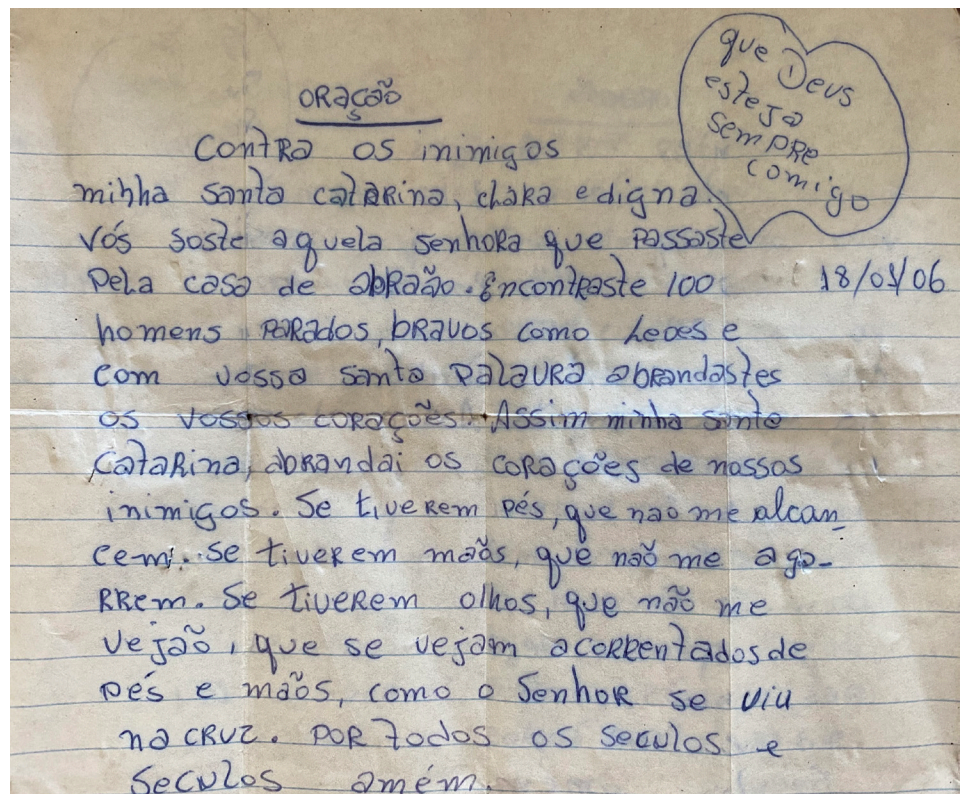 ORAÇÃO
Contra os inimigos
minha santa catarina, clara e digna.
Vós soste aquela senhora que passaste
Pela casa de abraão. Encontraste 100
homens parados, bravos como leoes e
com vossa santa palavra abrandastes
os vossos corações. Assim minha santa
Catarina, abrandai os corações de nossos
inimigos. Se tiverem pés, que nao me alcan_
cem. se tiverem maõs, que naõ me aga-
rrem. Se tiverem olhos, que não me
vejaõ, que se vejam acorrentados de
pés e mãos, como o Senhor se viu
na cruz. Por todos os seculos e
seculos amém.
que Deus
esteja
sempre
comigo
18/01/06